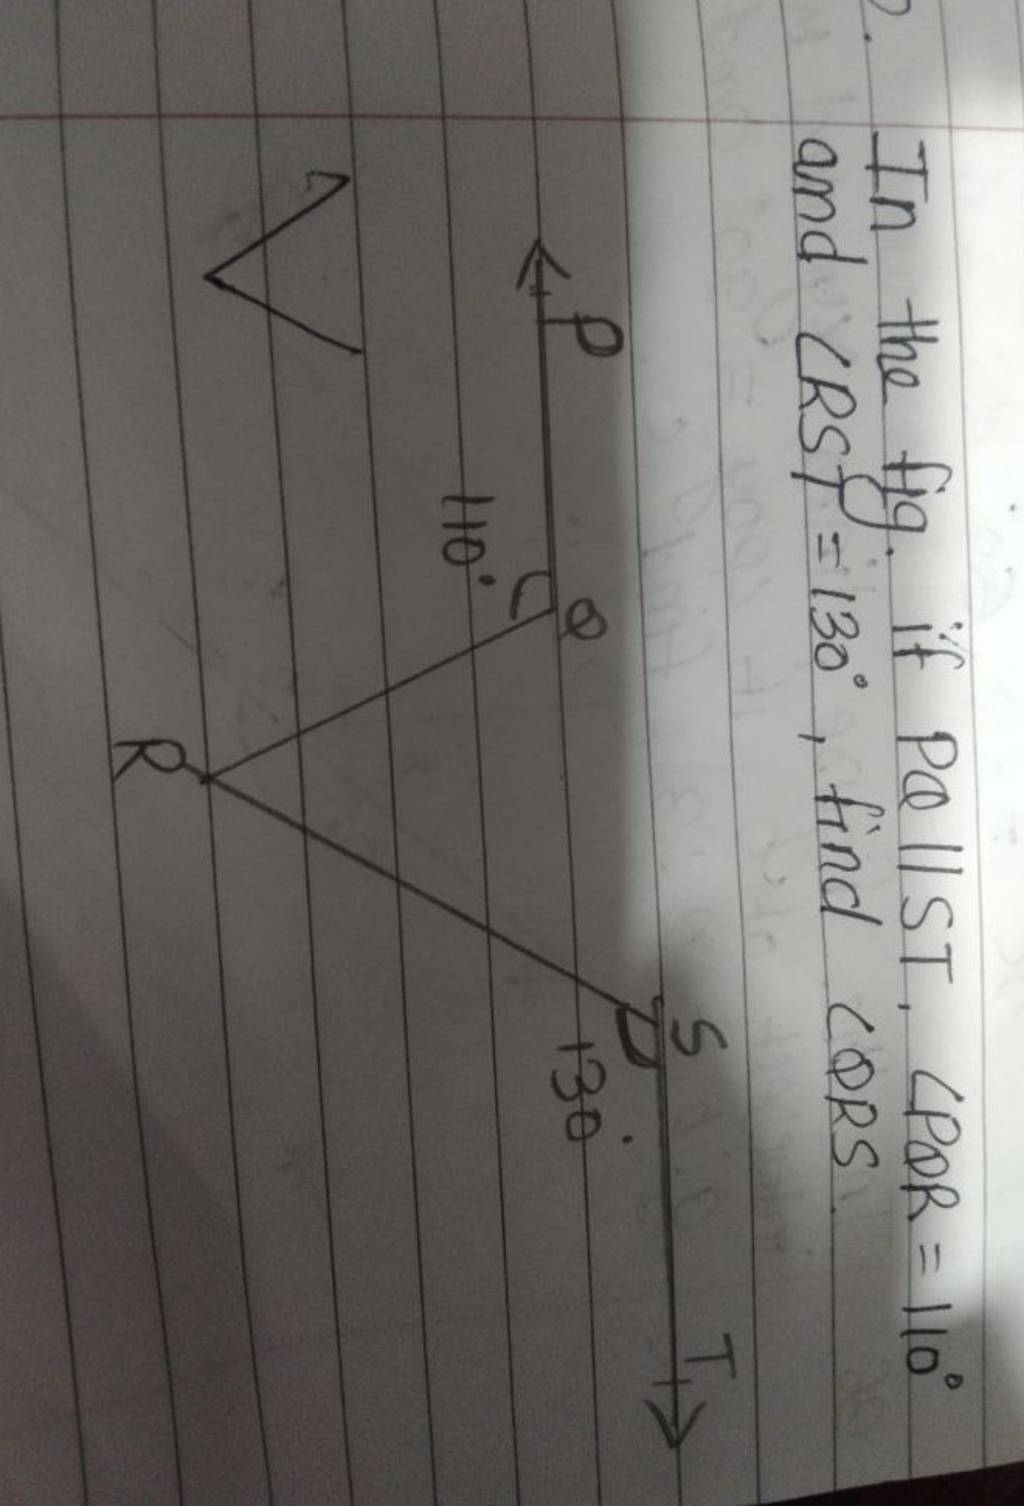 In the fig. if PQ || ST, ∠PQR = 110°
and ∠RST = 130°, find ∠QRS.
P
Q
S
T
110°
130°
R